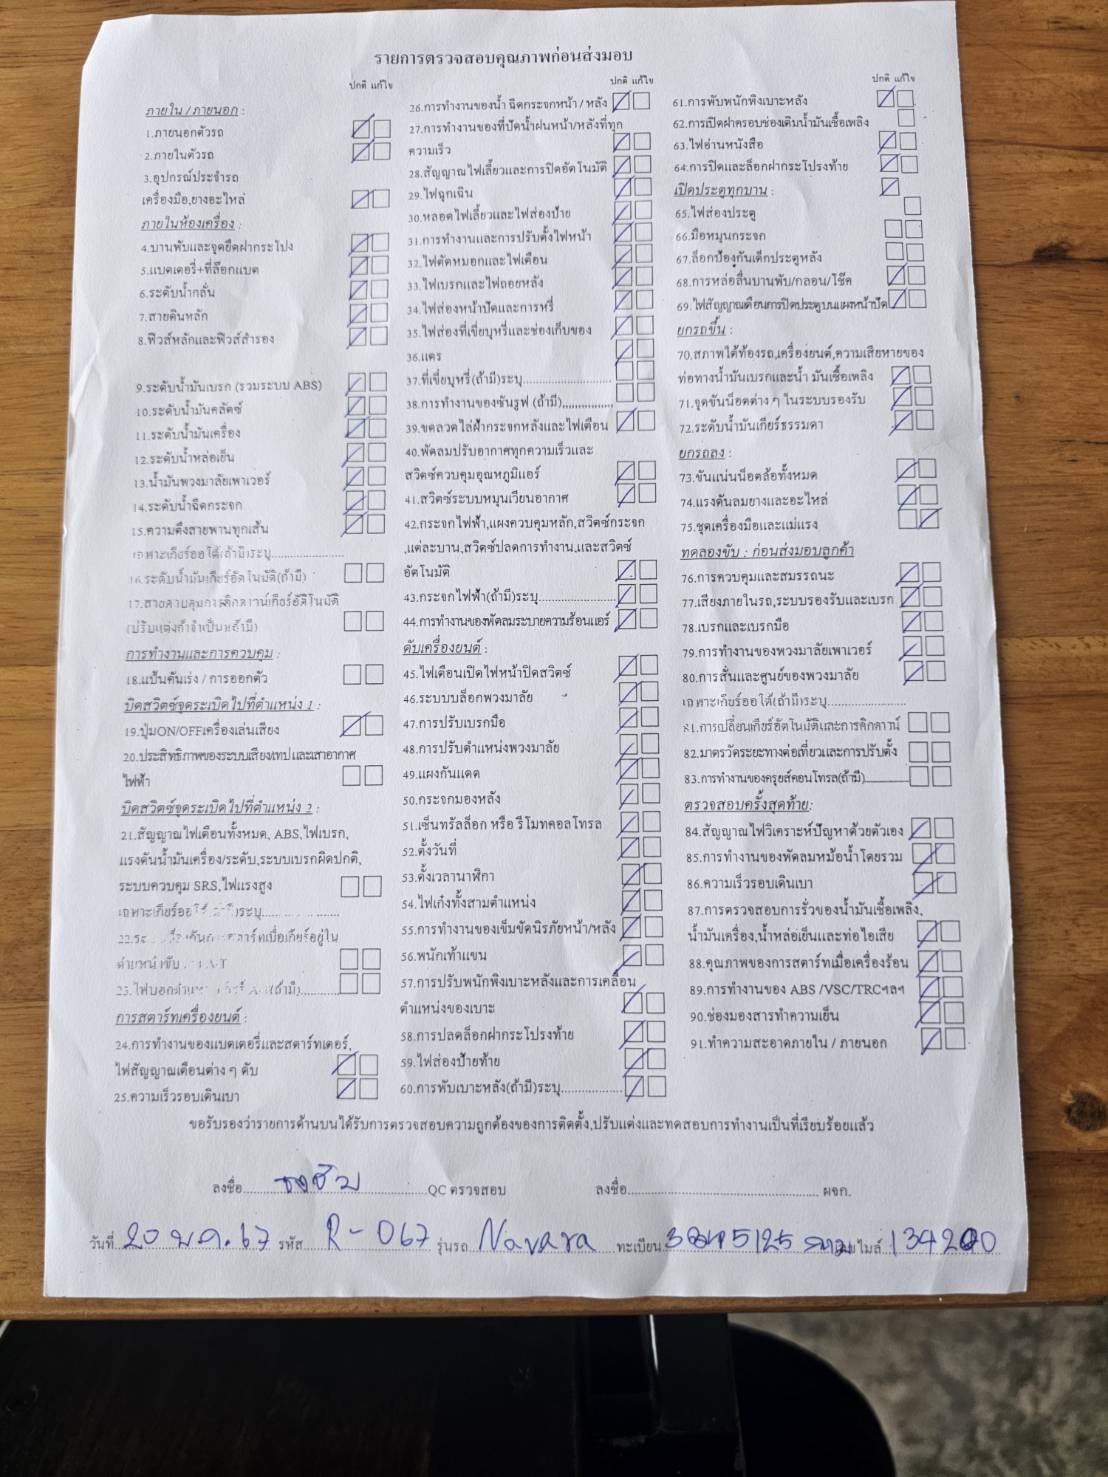 รายการตรวจสอบคุณภาพก่อนส่งมอบ
ปกติ แก้ไข
ภายใน / ภายนอก :
1.ภายนอกตัวรถ
2.ภายในตัวรถ
3.อุปกรณ์ประจำรถ
เครื่องมือ,ยางอะไหล่
ภายในห้องเครื่อง :
4.บานพับและจุดยึดฝากระโปง
5.แบตเตอรี่+ที่ล๊อกแบต
6.ระดับน้ำกลั่น
7.สายดินหลัก
8.ฟิวส์หลักและฟิวส์สำรอง
9.ระดับน้ำมันเบรก (รวมระบบ ABS)
10.ระดับน้ำมันคลัตซ์
11.ระดับน้ำมันเครื่อง
12.ระดับน้ำหล่อเย็น
13.น้ำมันพวงมาลัยเพาเวอร์
14.ระดับน้ำฉีดกระจก
15.ความตึงสายพานทุกเส้น
เฉพาะเกียร์ออโต้(ถ้ามี)ระบุ.....................
16.ระดับน้ำมันเกียร์อัตโนมัติ(ถ้ามี)
17.สายควบคุมการคิกดาวน์เกียร์อัติโนมัติ
(ปรับแต่งถ้าจำเป็นหถ้ามี)
การทำงานและการควบคุม :
18.แป้นคันเร่ง / การออกตัว
บิดสวิตซ์จุดระเบิดไปที่ตำแหน่ง 1 :
19.ปุ่มON/OFFเครื่องเล่นเสียง
20.ประสิทธิภาพของระบบเสียงเทปและเสาอากาศ
ไฟฟ้า
บิดสวิตซ์จุดระเบิดไปที่ตำแหน่ง 2 :
21.สัญญาณไฟเตือนทั้งหมด, ABS,ไฟเบรก,
แรงดันน้ำมันเครื่อง/ระดับ,ระบบเบรกผิดปกติ,
ระบบควบคุม SRS,ไฟแรงสูง
เฉพาะเกียร์ออ ระบุ
22.ระ เมื่อเกียร์อยู่ใน
ตำแหน่งขับ
23.ไฟบอกตำแหน่ง (ถ้ามี)
การสตาร์ทเครื่องยนต์ :
24.การทำงานของแบตเตอรี่และสตาร์ทเตอร์,
ไฟสัญญาณเตือนต่าง ๆ ดับ
25.ความเร็วรอบเดินเบา
ปกติ แก้ไข
26.การทำงานของน้ำ ฉีดกระจกหน้า / หลัง
27.การทำงานของที่ปัดน้ำฝนหน้า/หลังที่ทุก
ความเร็ว
28.สัญญาณไฟเลี้ยวและการปิดอัตโนมัติ
29.ไฟฉุกเฉิน
30.หลอดไฟเลี้ยวและไฟส่องป้าย
31.การทำงานและการปรับตั้งไฟหน้า
32.ไฟตัดหมอกและไฟเตือน
33.ไฟเบรกและไฟถอยหลัง
34.ไฟส่องหน้าปัดและการหรี่
35.ไฟส่องที่เขี่ยบุหรี่และช่องเก็บของ
36.แตร
37.ที่เขี่ยบุหรี่(ถ้ามี)ระบุ.........................
38.การทำงานของซันรูฟ (ถ้ามี)................
39.ขดลวดไล่ฝ้ากระจกหลังและไฟเตือน
40.พัดลมปรับอากาศทุกความเร็วและ
สวิตซ์ควบคุมอุณหภูมิแอร์
41.สวิตซ์ระบบหมุนเวียนอากาศ
42.กระจกไฟฟ้า,แผงควบคุมหลัก,สวิตซ์กระจก
,แต่ละบาน,สวิตซ์ปลดการทำงาน,และสวิตซ์
อัตโนมัติ
43.กระจกไฟฟ้า(ถ้ามี)ระบุ......................
44.การทำงานของพัดลมระบายความร้อนแอร์
ดับเครื่องยนต์ :
45.ไฟเตือนเปิดไฟหน้าปิดสวิตซ์
46.ระบบบล็อกพวงมาลัย
47.การปรับเบรกมือ
48.การปรับตำแหน่งพวงมาลัย
49.แผงกันแดด
50.กระจกมองหลัง
51.เซ็นทรัลล็อก หรือ รีโมทคอลโทรล
52.ตั้งวันที่
53.ตั้งเวลานาฬิกา
54.ไฟเก๋งทั้งสามตำแหน่ง
55.การทำงานของเข็มขัดนิรภัยหน้า/หลัง
56.พนักเท้าแขน
57.การปรับพนักพิงเบาะหลังและการเคลื่อน
ตำแหน่งของเบาะ
58.การปลดล็อกฝากระโปรงท้าย
59.ไฟส่องป้ายท้าย
60.การพับเบาะหลัง(ถ้ามี)ระบุ..................
ปกติ แก้ไข
61.การพับพนักพิงเบาะหลัง
62.การเปิดฝาครอบช่องเติมน้ำมันเชื้อเพลิง
63.ไฟอ่านหนังสือ
64.การปิดและล็อกฝากระโปรงท้าย
เปิดประตูทุกบาน :
65.ไฟส่องประตู
66.มือหมุนกระจก
67.ล็อกป้องกันเด็กประตูหลัง
68.การหล่อลื่นบานพับ/กลอน/โช๊ค
69.ไฟสัญญาณเตือนการปิดประตูบนแผงหน้าปัด
ยกรถขึ้น :
70.สภาพใต้ท้องรถ,เครื่องยนต์,ความเสียหายของ
ท่อทางน้ำมันเบรกและน้ำ มันเชื้อเพลิง
71.จุดขันน๊อตต่าง ๆ ในระบบรองรับ
72.ระดับน้ำมันเกียร์ธรรมดา
ยกรถลง :
73.ขันแน่นน๊อตล้อทั้งหมด
74.แรงดันลมยางและอะไหล่
75.ชุดเครื่องมือและแม่แรง
ทดลองขับ : ก่อนส่งมอบลูกค้า
76.การควบคุมและสมรรถนะ
77.เสียงภายในรถ,ระบบรองรับและเบรก
78.เบรกและเบรกมือ
79.การทำงานของพวงมาลัยเพาเวอร์
80.การสั่นและศูนย์ของพวงมาลัย
เฉพาะเกียร์ออโต้(ถ้ามี)ระบุ.....................
81.การเปลี่ยนเกียร์อัตโนมัติและการคิกดาวน์
82.มาตรวัดระยะทางต่อเที่ยวและการปรับตั้ง
83.การทำงานของครุยส์คอนโทรล(ถ้ามี)............
ตรวจสอบครั้งสุดท้าย:
84.สัญญาณไฟวิเคราะห์ปัญหาด้วยตัวเอง
85.การทำงานของพัดลมหม้อน้ำโดยรวม
86.ความเร็วรอบเดินเบา
87.การตรวจสอบการรั่วของน้ำมันเชื้อเพลิง,
น้ำมันเครื่อง,น้ำหล่อเย็นและท่อไอเสีย
88.คุณภาพของการสตาร์ทเมื่อเครื่องร้อน
89.การทำงานของ ABS /VSC/TRCฯลฯ
90.ช่องมองสารทำความเย็น
91.ทำความสะอาดภายใน / ภายนอก
ขอรับรองว่ารายการด้านบนได้รับการตรวจสอบความถูกต้องของการติดตั้ง,ปรับแต่งและทดสอบการทำงานเป็นที่เรียบร้อยแล้ว
ลงชื่อ ธงชัย QC ตรวจสอบ ลงชื่อ........................ ผจก.
วันที่ 20 พ.ค. 67 รหัส R-067 รุ่นรถ Navara ทะเบียน 5125 กทม ไมล์ 134200